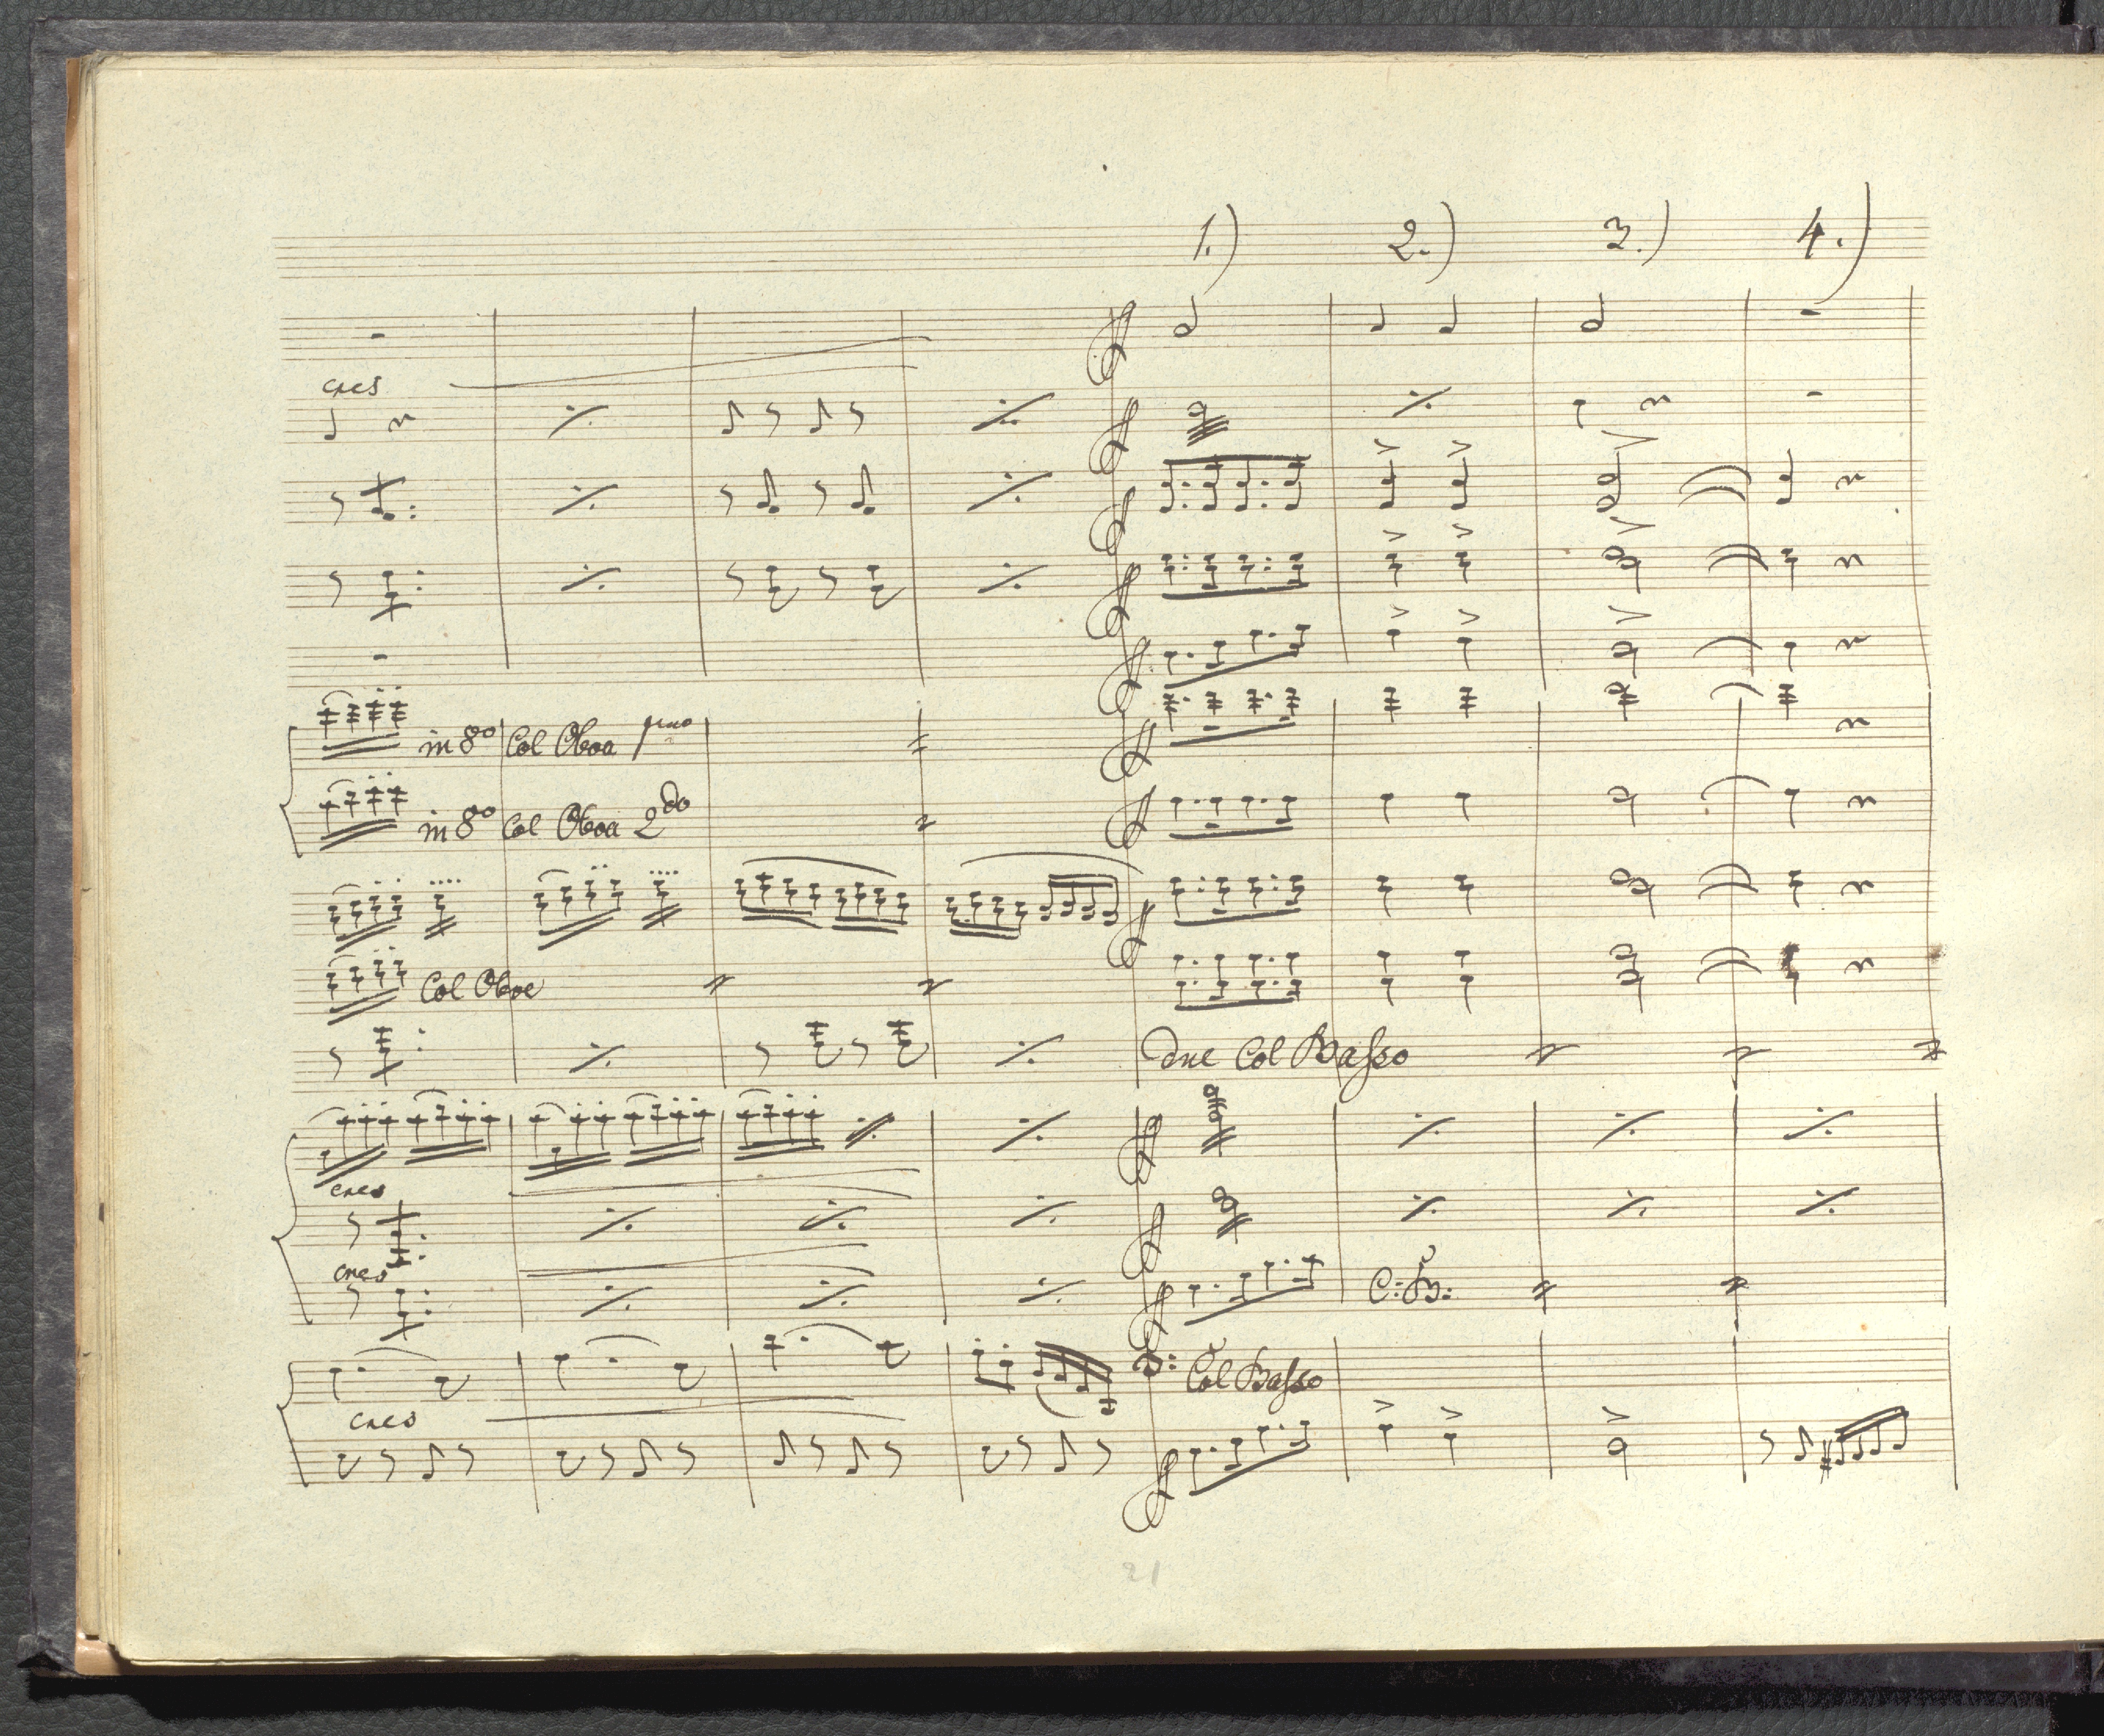 1.) 2.) 3.) 4.)
cres
in 8º Col Oboa pmo
in 8º Col Oboa 2do
Col Oboe
due Col Basso
cres
cres
C: B:
Col Basso
cres
21